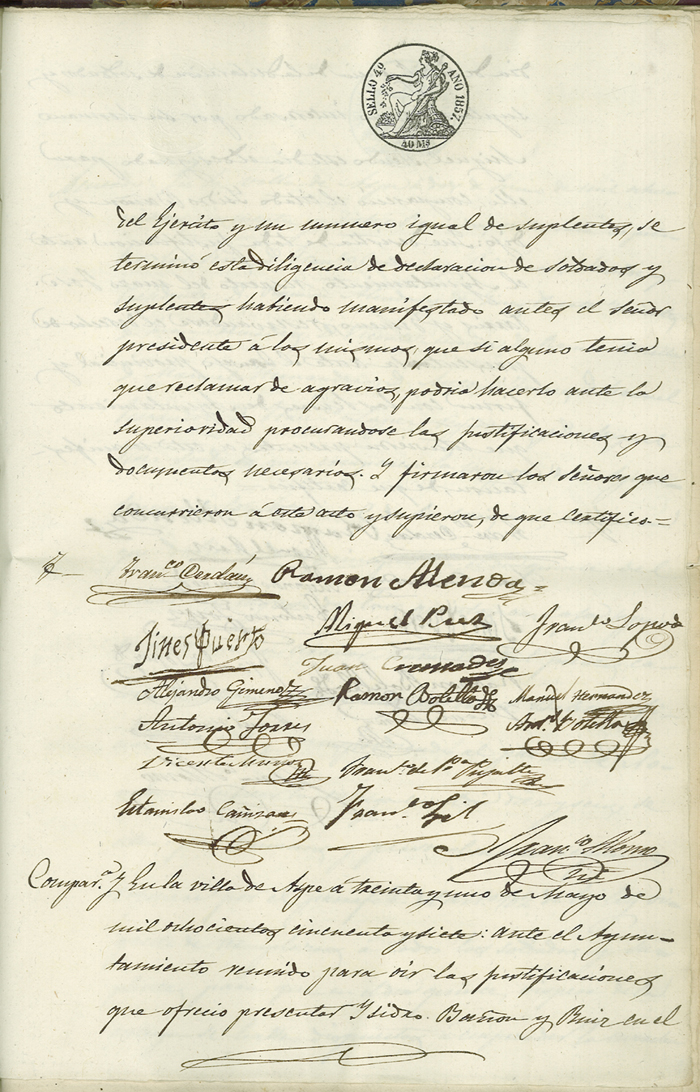 SELLO 4º AÑO 1857.
40 Ms
del Ejercito y un numero igual de suplentes, se
terminó esta diligencia de declaracion de soldados y
suplentes, habiendo manifestado antes el señor
presidente á los mismos, que si alguno tenia
que reclamar de agravios, podria hacerlo ante la
superioridad procurandose las justificaciones y
documentos necesarios. Y firmaron los Señores que
concurrieron á este acto y supieron, de que Certifico.=
Franco. Cerdán Ramon Alenda=
Jines Puerto Miguel Ruiz Frando. Lopez
Juan Cremades
Alejandro Gimenez Ramon Botella Manuel Hernandez
Antonio Torres Anto. Botella
Vicente Franco. de Pa. Pujalte
Estanislao Cañizares Frando. Gil
Franco. Alonso
Compara. y En la villa de Aspe á treinta y uno de Mayo de
mil ochocientos cincuenta y siete: ante el Ayun-
tamiento reunido para oir las justificaciones
que ofrecio presentar Ysidro Bañon y Ruiz en el